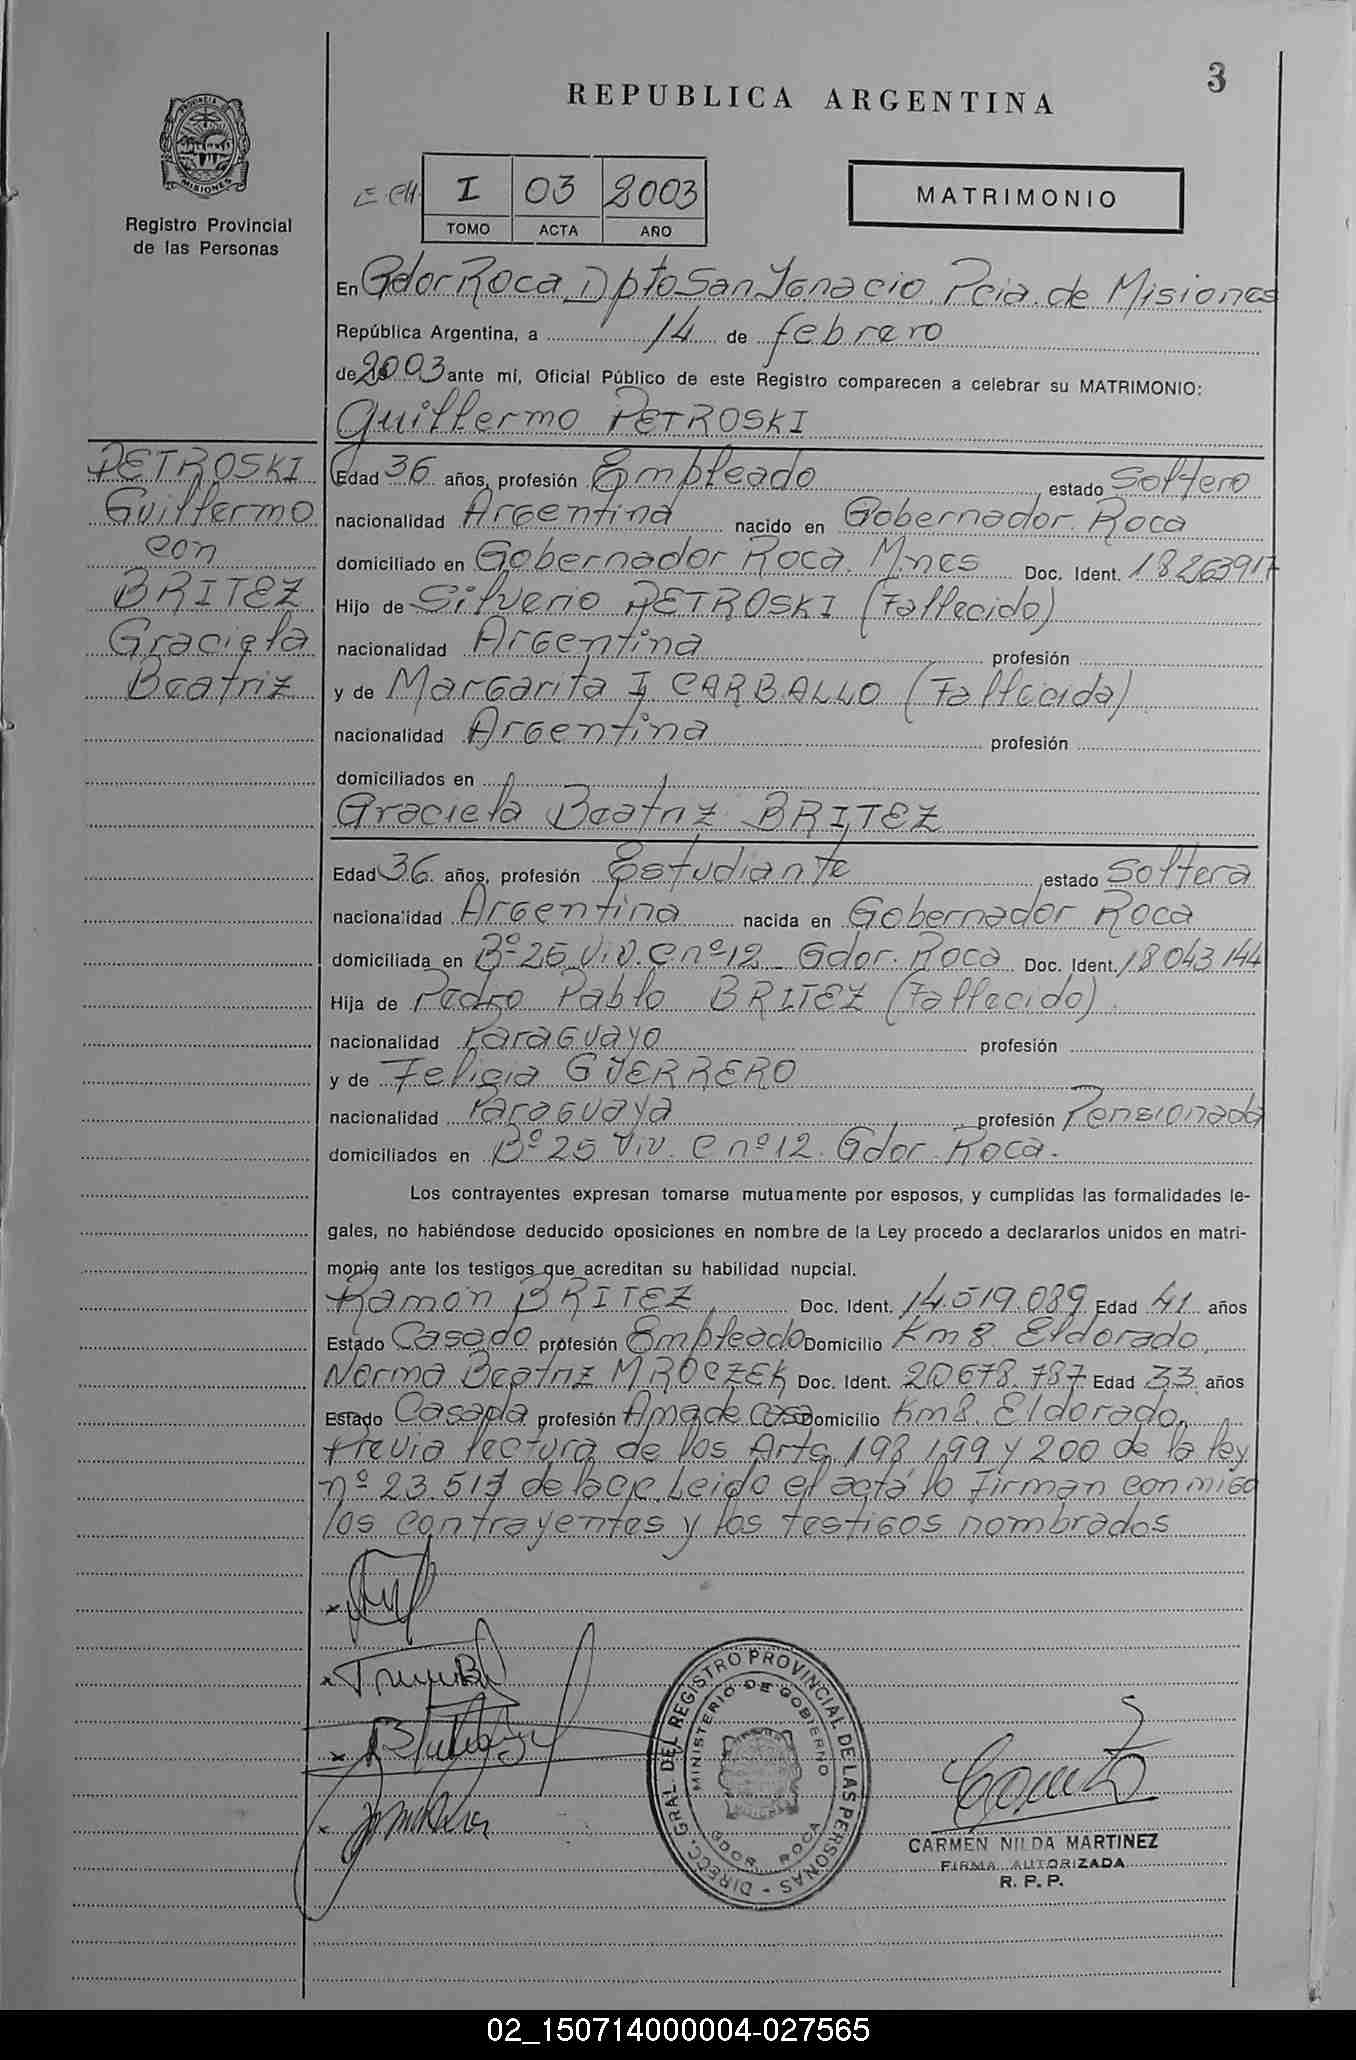 3
REPUBLICA ARGENTINA
MISIONES
Registro Provincial
de las Personas
I 03 2003
TOMO ACTA AÑO
MATRIMONIO
En Gdor Roca Dpto San Ignacio Pcia. de Misiones
República Argentina, a 14 de febrero
de 2003 ante mí, Oficial Público de este Registro comparecen a celebrar su MATRIMONIO:
Guillermo PETROSKI
PETROSKI
Guillermo
con
BRITEZ
Graciela
Beatriz
Edad 36 años, profesión Empleado estado Soltero
nacionalidad Argentina nacido en Gobernador Roca
domiciliado en Gobernador Roca. Mnes Doc. Ident. 18263917
Hijo de Silverio PETROSKI (Fallecido)
nacionalidad Argentina profesión
y de Margarita I. CARBALLO (Fallecida)
nacionalidad Argentina profesión
domiciliados en
Graciela Beatriz BRITEZ
Edad 36 años, profesión Estudiante estado Soltera
nacionalidad Argentina nacida en Gobernador Roca
domiciliada en Bº 25 Viv. C nº 12 _ Gdor. Roca Doc. Ident. 18043144
Hija de Pedro Pablo BRITEZ (Fallecido)
nacionalidad Paraguayo profesión
y de Felicia GUERRERO
nacionalidad Paraguaya profesión Pensionada
domiciliados en Bº 25 Viv. C nº 12. Gdor. Roca.
Los contrayentes expresan tomarse mutuamente por esposos, y cumplidas las formalidades le-
gales, no habiéndose deducido oposiciones en nombre de la Ley procedo a declararlos unidos en matri-
monio ante los testigos que acreditan su habilidad nupcial.
Ramón BRITEZ Doc. Ident. 14.519.089 Edad 41 años
Estado Casado profesión Empleado Domicilio Km 8 Eldorado
Norma Beatriz MROCZEK Doc. Ident. 20678.787 Edad 33 años
Estado Casada profesión Ama de casa Domicilio Km 8. Eldorado.
Previa lectura de los Arts. 198, 199 y 200 de la ley
nº 23.515 de la CC. Leido el acta lo firman conmigo
los contrayentes y los testigos nombrados
DIRECC. GRAL. DEL REGISTRO PROVINCIAL DE LAS PERSONAS -
MINISTERIO DE GOBIERNO
GDOR. ROCA
CARMEN NILDA MARTINEZ
FIRMA AUTORIZADA
R. P. P.
02_150714000004-027565